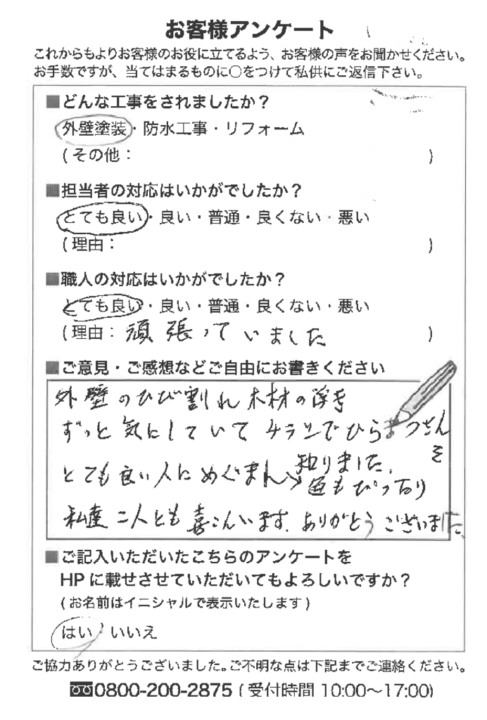 お客様アンケート
これからもよりお客様のお役に立てるよう、お客様の声をお聞かせください。
お手数ですが、当てはまるものに○をつけて私供にご返信下さい。
■どんな工事をされましたか？
外壁塗装・防水工事・リフォーム
(その他： )
■担当者の対応はいかがでしたか？
とても良い・良い・普通・良くない・悪い
(理由： )
■職人の対応はいかがでしたか？
とても良い・良い・普通・良くない・悪い
(理由：頑張っていました )
■ご意見・ご感想などご自由にお書きください
外壁のひび割れ 木材の浮き
ずっと気にしていて チラシでひらまつさんを
知りました。
とても良い人にめぐまれ 色もぴったり
私達二人とも喜こんいます。ありがとうございました
■ご記入いただいたこちらのアンケートを
HPに載せさせていただいてもよろしいですか？
(お名前はイニシャルで表示いたします)
はい いいえ
ご協力ありがとうございました。ご不明な点は下記までご連絡ください。
0800-200-2875 (受付時間 10:00〜17:00)